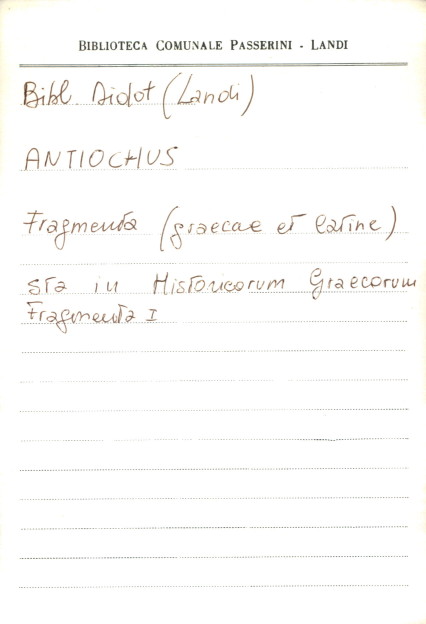 BIBLIOTECA COMUNALE PASSERINI - LANDI
Bibl Didot (Landi)
ANTIOCHUS
Fragmenta (graecae et latine)
sta in Historicorum Graecorum
Fragmenta I